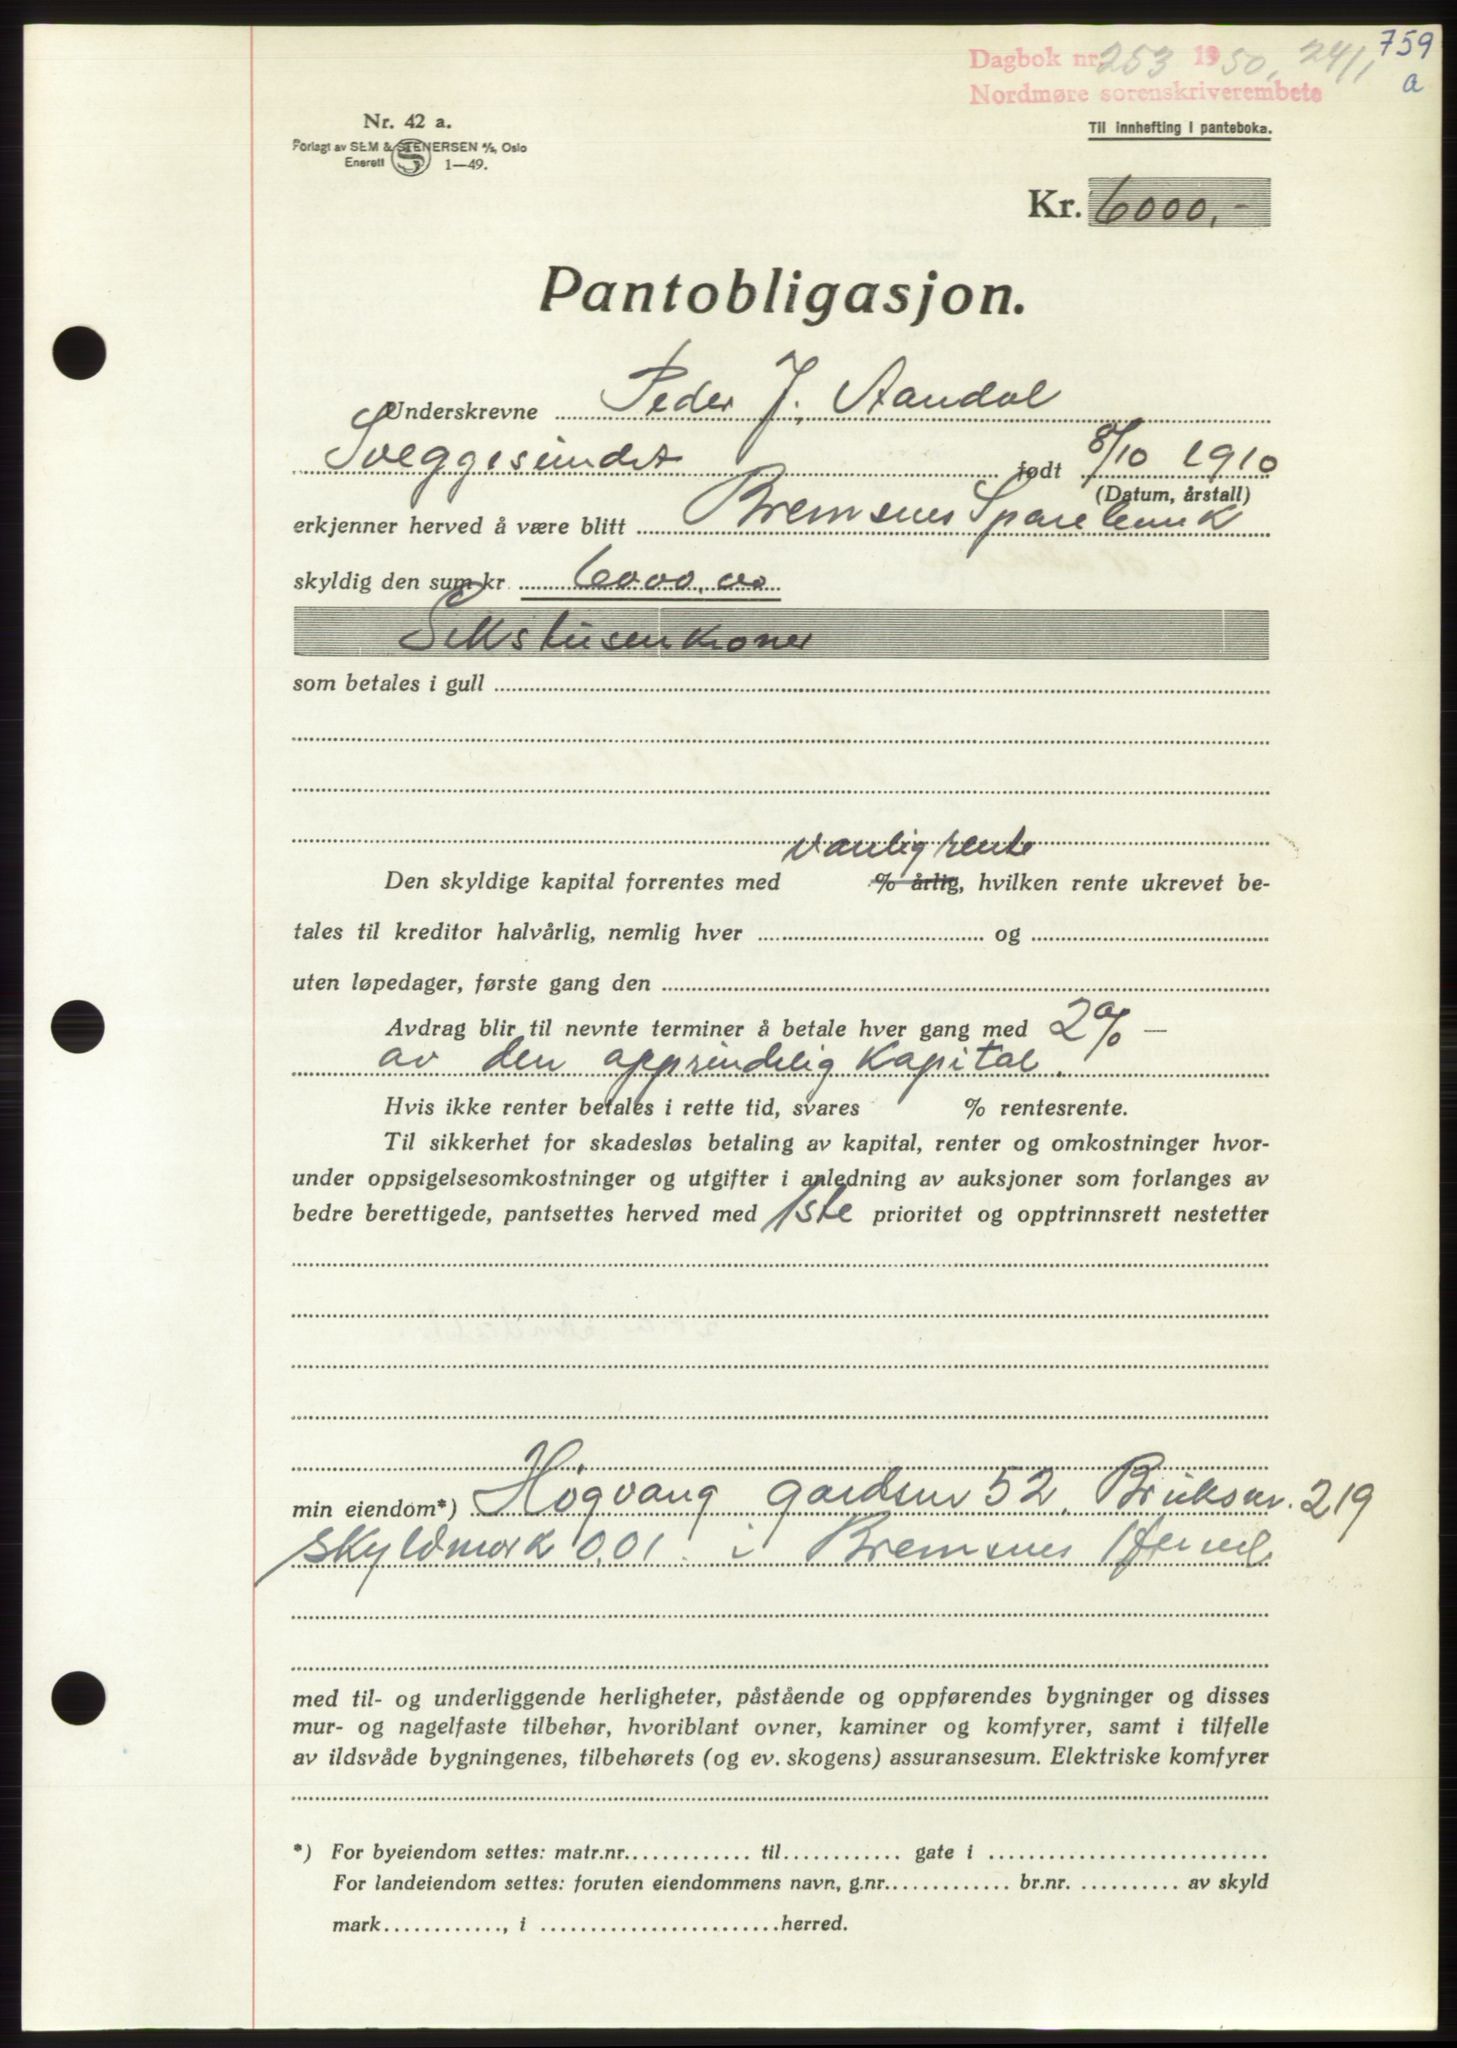 759
a
Dagbok nr. 253 1950, 24/1
Nordmøre sorenskriverembete
Til innhefting i panteboka.
Nr. 42 a.
Forlagt av SEM & STENERSEN A/S, Oslo
Enerett S 1—49.
Kr. 6000,-
Pantobligasjon.
Underskrevne Peder J. Aandal
Sveggesundet født 8/10 1910
(Datum, årstall)
erkjenner herved å være blitt Bremsnes Sparebank
skyldig den sum kr 6000,00
Sekstusenkroner
som betales i gull
vanlig rente
Den skyldige kapital forrentes med % årlig, hvilken rente ukrevet be-
tales til kreditor halvårlig, nemlig hver og
uten løpedager, første gang den
Avdrag blir til nevnte terminer å betale hver gang med 2% —
av den opprindelig Kapital.
Hvis ikke renter betales i rette tid, svares % rentesrente.
Til sikkerhet for skadesløs betaling av kapital, renter og omkostninger hvor-
under oppsigelsesomkostninger og utgifter i anledning av auksjoner som forlanges av
bedre berettigede, pantsettes herved med 1ste prioritet og opptrinnsrett nestetter
min eiendom*) Høgvang gardsnr 52, Bruksnr. 219
skyldmark 0,01 i Bremsnes
med til- og underliggende herligheter, påstående og oppførendes bygninger og disses
mur- og nagelfaste tilbehør, hvoriblant ovner, kaminer og komfyrer, samt i tilfelle
av ildsvåde bygningenes, tilbehørets (og ev. skogens) assuransesum. Elektriske komfyrer
*) For byeiendom settes: matr.nr. til gate i
For landeiendom settes: foruten eiendommens navn, g.nr. br.nr. av skyld
mark , i herred.